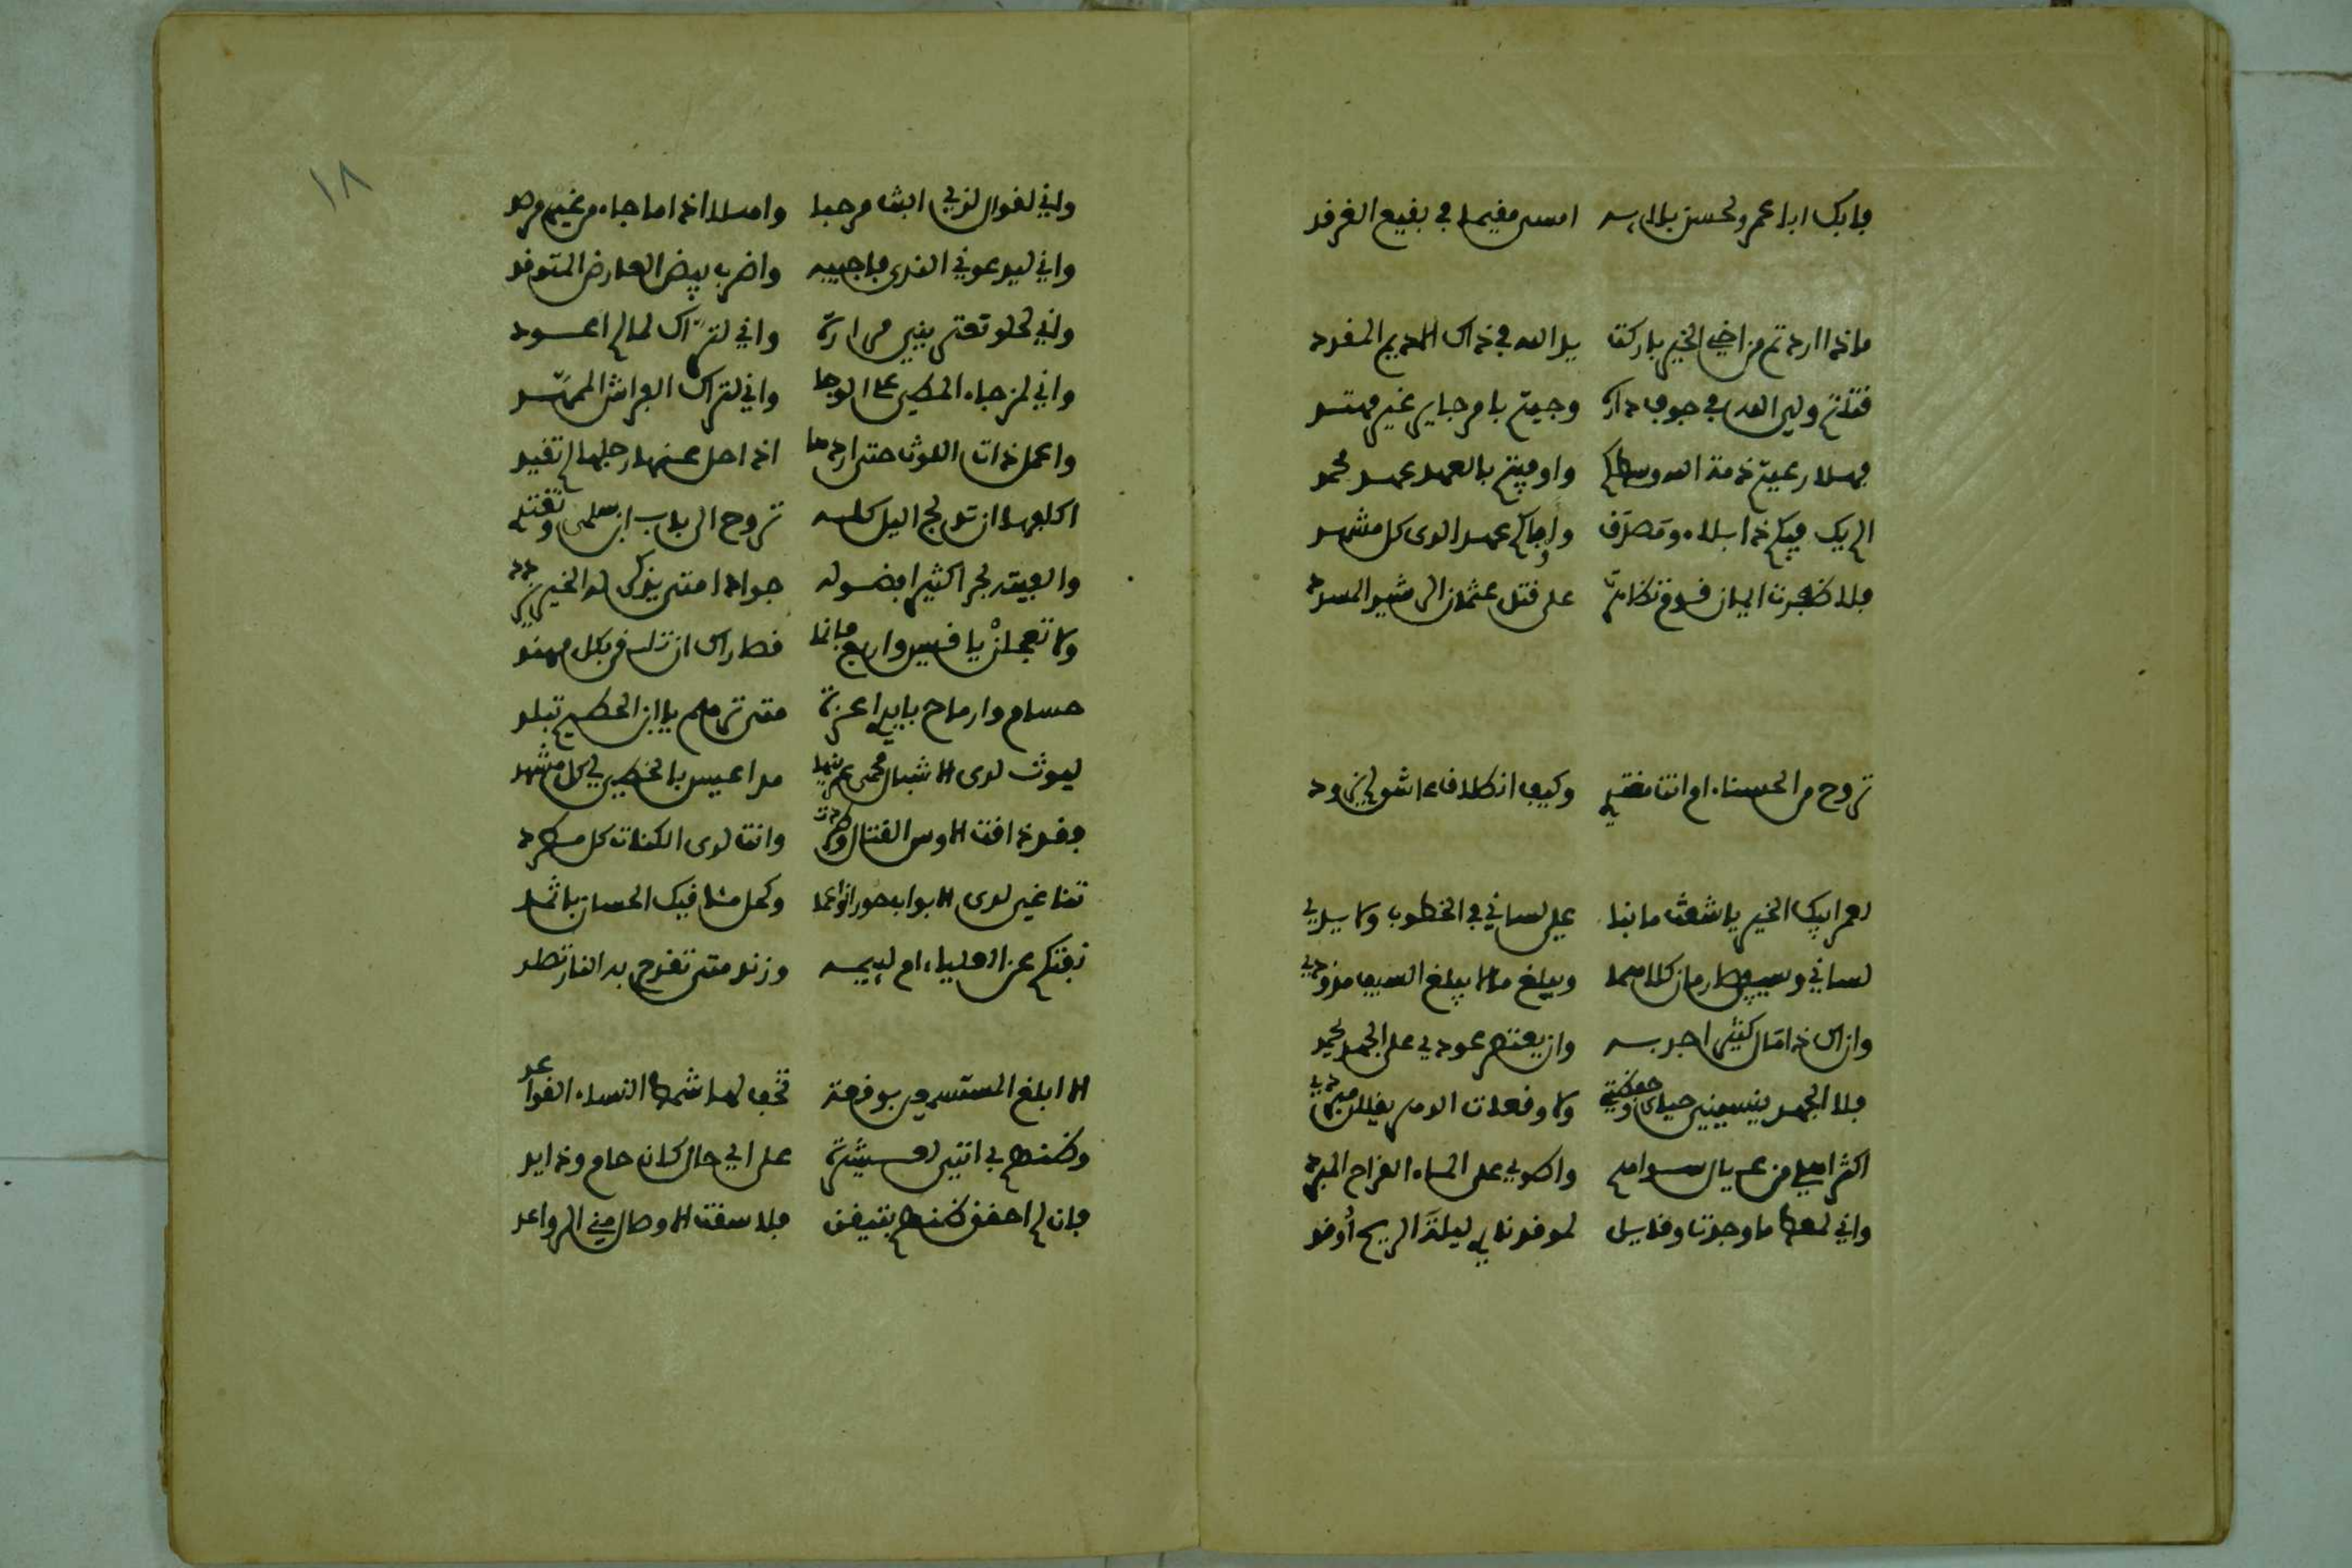 فابك ابا عمرو لحسن بلايه امسى مقيما في بقيع الغرقد
ماذا اردتم من اخي الخير باركت يد الله في ذاك الاديم المقدد
قتلتم ولي الله في جوف داره وجيتم بامر جاير غير مهتد
فهلا رعيتم ذمة الله وسطكم واوفيتم بالعهد عهد محمد
الم يك فيكم ذا بلاء ومصدق واوفاكم عهدا لدى كل مشهد
فلا ظفرت ايمان قوم تظاهرت على قتل عثمان الرشيد المسدد
تروح من الحسناء ام انت مغتدي وكيف انطلاق عاشق لم يزود
لعمر ابيك الخير يا شعث ما نبا علي لساني في الخطوب ولا يدي
لساني وسيفي صارمان كلاهما ويبلغ ما لا يبلغ السيف مذودي
وان اك ذا مال كثير اجد به وان يعتصر عودي على الجهد يحمد
فلا الجهد ينسيني حياي وحفظتي ولا وقعات الدهر يفللن مبردي
اكثر اهلي من عيال سواهم واطوي على الماء القراح المبرد
واني لمعط ما وجدت وقايل لموقد ناري ليلة الريح اوقد
واني لقوال لذي البث مرحبا واهلا اذا ما جاء من غير مرصد
واني ليدعوني الندى فاجيبه واضرب بيض العارض المتوقد
واني لحلو تعتريني مرارة واني لتراك لما لم اعود
واني لمزجاء المطي على الوجا واني لتراك الفراش الممهد
واعمل ذات اللوث حتى اردها اذا حل عنها رحلها لم تقيد
اكلفها ان تدلج اليل كله تروح الى باب ابن سلمى وتغتدي
والفيته بحرا كثيرا فضوله جوادا متى يذكر له الخير يزدد
ولا تعجلن يا قيس واربع فانما قصاراك ان تلقى بكل مهند
حسام وارماح بايدي اعزة متى ترهم يا ابن الخطيم تبلد
ليوث لدى الاشبال محمى عرينها مداعيس بالخطي في كل مشهد
فقد ذاقت الاوس القتال وطردت وانت لدى الكنات كل مطرد
تناغي لدى الابواب حورا نواعما وكحل ماقيك الحسان باثمد
نفتكم عن العلياء ام لييمه وزند متى تقدح به النار تصلد
الا ابلغ المستسمعين بوقعة تخف لها شمط النساء القواعد
وظنهم بي انني لعشيرتي على اي حال كان حام وذايد
فان لم احقق ظنهم بتيقن فلا سقت الاوصال مني الرواعد
١٨